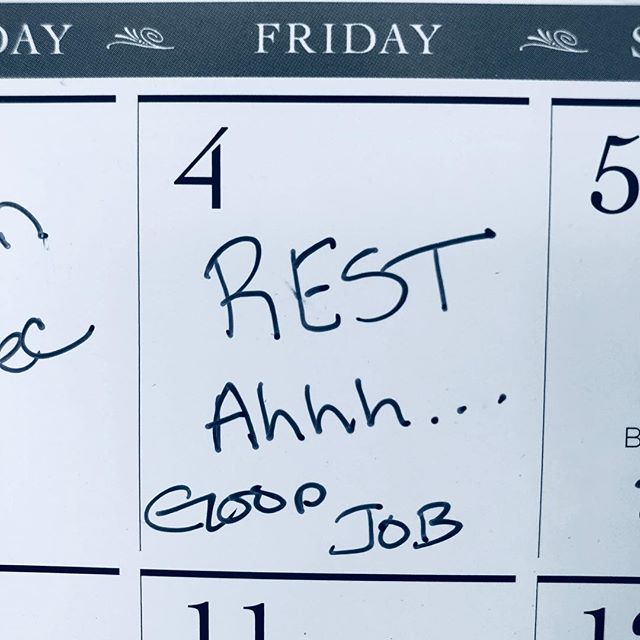 DAY FRIDAY S
4 5
REST
Ahhh...
GOOD JOB
11